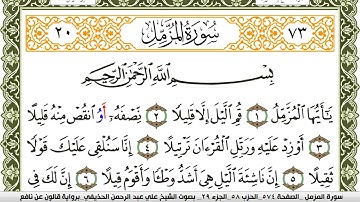 ٢٠ سُورَةُ الْمُزَّمِّلِ ٧٣
بِسْمِ اللَّهِ الرَّحْمَٰنِ الرَّحِيمِ
يَٰٓأَيُّهَا اَلْمُزَّمِّلُ ١ قُمِ اِليْلَ إِلَّا قَلِيلًا ٢ نِّصْفَهُۥ أَوُ اُنقُصْ مِنْهُ قَلِيلًا
٣ أَوْ زِدْ عَلَيْهِ وَرَتِّلِ اِلْقُرْءَانَ تَرْتِيلًا ٤ إِنَّا سَنُلْقِى عَلَيْكَ قَوْلًا
ثَقِيلًا ٥ إِنَّ نَاشِئَةَ اَليْلِ هِىَ أَشَدُّ وَطْـًٔا وَأَقْوَمُ قِيلًا ٦ إِنَّ لَكَ فِى
سورة المزمل . الصفحة ٥٧٤. الحزب ٥٨. الجزء ٢٩ . بصوت الشيخ علي عبد الرحمن الحذيفي. برواية قالون عن نافع